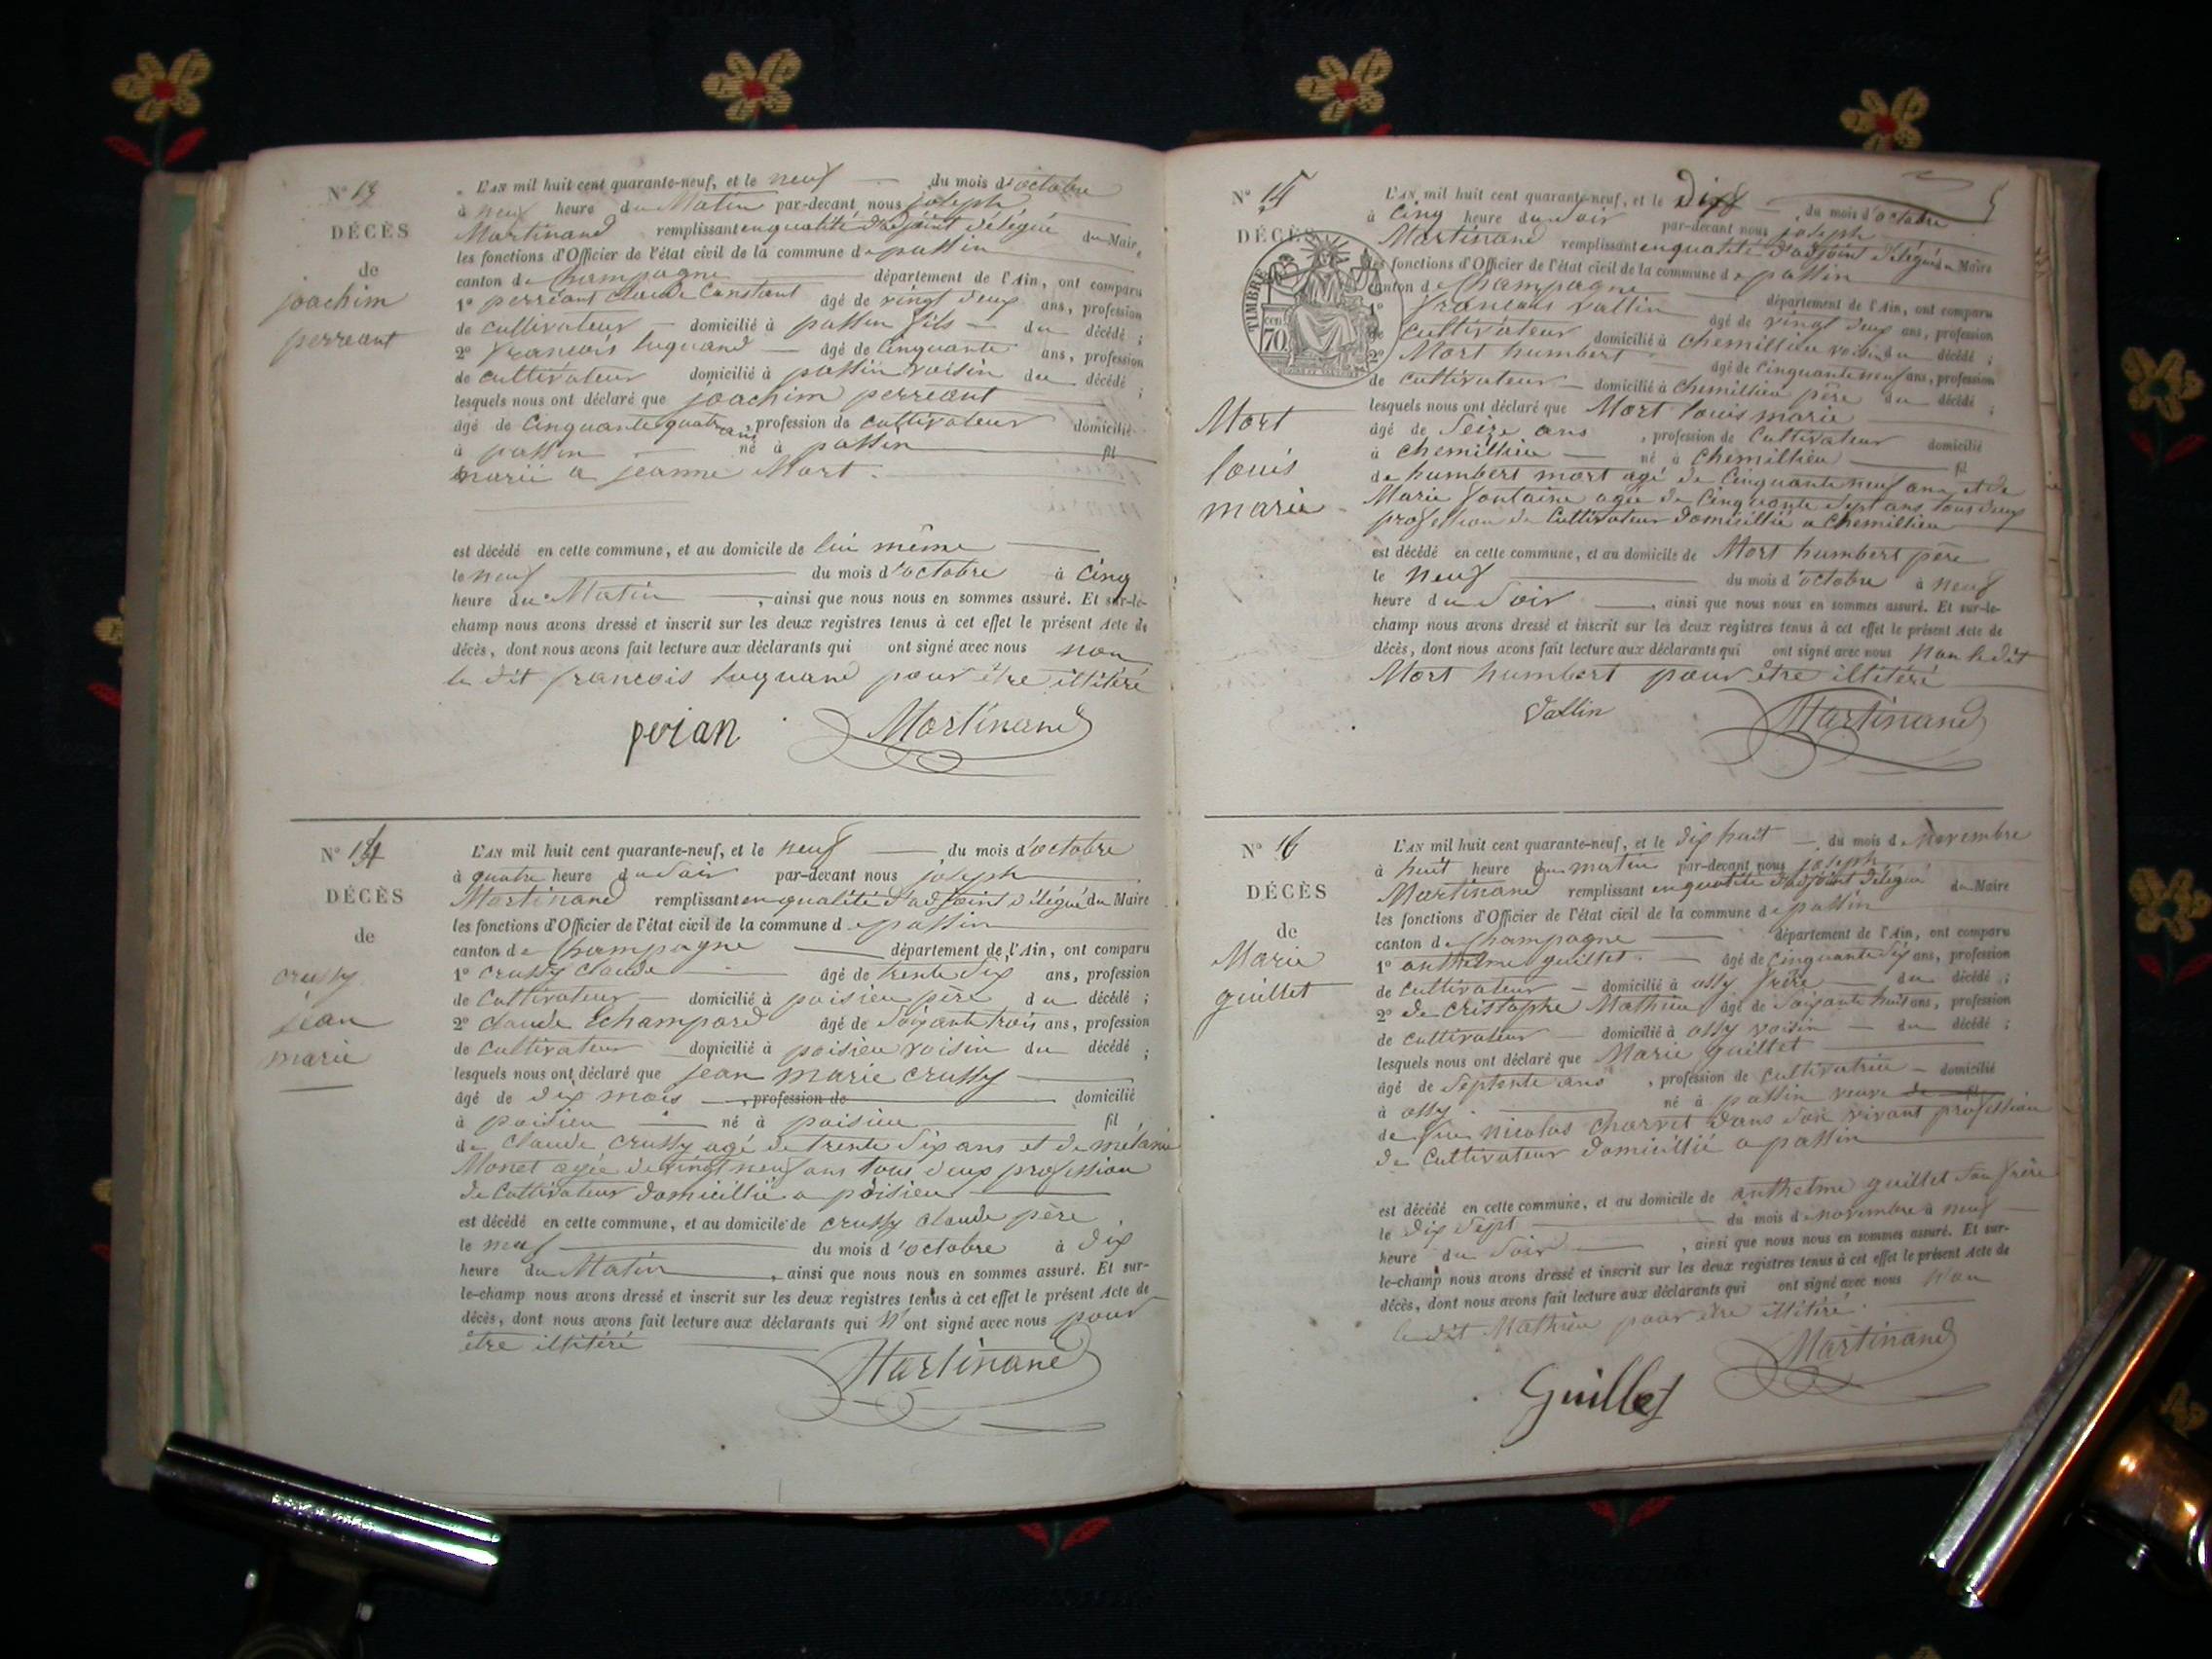 N° 13
DÉCÈS
de
joachim
perreant
L'AN mil huit cent quarante-neuf, et le neuf du mois d'octobre
à neuf heure du Matin par-devant nous joseph
Martinand remplissant en qualité d'adjoint délégué du Maire
les fonctions d'Officier de l'état civil de la commune de passin
canton de Champagne département de l'Ain, ont comparu
1° perréant Claude Constant âgé de vingt deux ans, profession
de cultivateur domicilié à passin fils du décédé ;
2° francois luquand âgé de Cinquante ans, profession
de cultivateur domicilié à passin voisin du décédé ;
lesquels nous ont déclaré que joachim perreant
âgé de Cinquante quatre ans, profession de cultivateur domicilié
à passin né à passin fil
marié a jeanne Mort.
est décédé en cette commune, et au domicile de lui même
le neuf du mois d'octobre à Cinq
heure du Matin, ainsi que nous nous en sommes assuré. Et sur-le-
champ nous avons dressé et inscrit sur les deux registres tenus à cet effet le présent Acte de
décès, dont nous avons fait lecture aux déclarants qui ont signé avec nous non
le dit francois luquand pour être illitéré
perian Martinand
N° 14
DÉCÈS
de
crussy
jean
marie
L'AN mil huit cent quarante-neuf, et le neuf du mois d'octobre
à quatre heure du Soir par-devant nous joseph
Martinand remplissant en qualité d'adjoint délégué du Maire
les fonctions d'Officier de l'état civil de la commune de passin
canton de Champagne département de l'Ain, ont comparu
1° crussy claude âgé de trente dix ans, profession
de Cultivateur domicilié à poisieu père du décédé ;
2° claude Echampard âgé de Soixante trois ans, profession
de Cultivateur domicilié à poisieu voisin du décédé ;
lesquels nous ont déclaré que jean marie crussy
âgé de dix mois, profession de domicilié
à poisieu né à poisieu fil
de Claude Crussy agé de trente dix ans et de mélanie
Monet agée de vingt neuf ans tous deux profession
de Cultivateur domicillié a poisieu
est décédé en cette commune, et au domicile de crussy claude père
le neuf du mois d'octobre à dix
heure du Matin, ainsi que nous nous en sommes assuré. Et sur-
le-champ nous avons dressé et inscrit sur les deux registres tenus à cet effet le présent Acte de
décès, dont nous avons fait lecture aux déclarants qui n'ont signé avec nous pour
être illitéré
Martinand
N° 15
DÉCÈS
TIMBRE
70
Mort
louis
marie
L'AN mil huit cent quarante-neuf, et le Dix du mois d'octobre
à Cinq heure du Soir par-devant nous joseph
Martinand remplissant en qualité d'adjoint délégué du Maire
les fonctions d'Officier de l'état civil de la commune de passin
canton de Champagne département de l'Ain, ont comparu
1° francois vallin âgé de vingt deux ans, profession
de Cultivateur domicilié à chemillieu voisin du décédé ;
2° Mort humbert âgé de Cinquante neuf ans, profession
de Cultivateur domicilié à Chemillieu père du décédé ;
lesquels nous ont déclaré que Mort louis marie
âgé de Seize ans, profession de Cultivateur domicilié
à Chemillieu né à Chemillieu fil
de humbert mort agé de Cinquante neuf ans et de
Marie fontaine agée de Cinquante Sept ans tous deux
profession de Cultivateur domicillié a Chemillieu
est décédé en cette commune, et au domicile de Mort humbert père
le Neuf du mois d'octobre à neuf
heure du Soir, ainsi que nous nous en sommes assuré. Et sur-le-
champ nous avons dressé et inscrit sur les deux registres tenus à cet effet le présent Acte de
décès, dont nous avons fait lecture aux déclarants qui ont signé avec nous Non le dit
Mort humbert pour être illitéré
Vallin Martinand
N° 16
DÉCÈS
de
Marie
guillet
L'AN mil huit cent quarante-neuf, et le dix huit du mois de Novembre
à huit heure du matin par-devant nous joseph
Martinand remplissant en qualité d'adjoint délégué du Maire
les fonctions d'Officier de l'état civil de la commune de passin
canton de Champagne département de l'Ain, ont comparu
1° anthelme guillet âgé de Cinquante dix ans, profession
de Cultivateur domicilié à ossy frère du décédé ;
2° de Cristophe Mathieu âgé de Soixante huit ans, profession
de cultivateur domicilié à ossy voisin du décédé ;
lesquels nous ont déclaré que Marie guillet
âgé de Septente ans, profession de cultivatrice domicilié
à ossy né à passin veuve de fil
de feu nicolas Charvet dans son vivant profession
de Cultivateur domicillié a passin
est décédé en cette commune, et au domicile de anthelme guillet Son frère
le dix Sept du mois de novembre à neuf
heure du Soir, ainsi que nous nous en sommes assuré. Et sur-
le-champ nous avons dressé et inscrit sur les deux registres tenus à cet effet le présent Acte de
décès, dont nous avons fait lecture aux déclarants qui ont signé avec nous Non
le dit Mathieu pour être illitéré
Martinand
Guillet